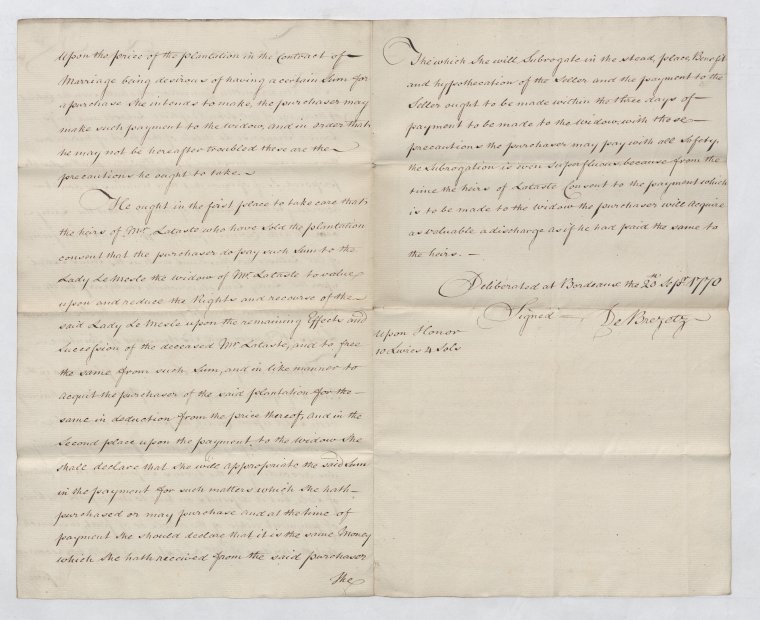 upon the price of the plantation in the Contract of
Marriage being desirous of having a certain Sum for
a purchase She intends to make, the purchaser may
make such payment to the widow, and in order that
he may not be hereafter troubled these are the
precautions he ought to take.
He ought in the first place to take care that
the heirs of Mr. Lataste who have sold the plantation
consent that the purchaser do pay such Sum to the
Lady Le Mesle the widow of Mr. Lataste to value
upon and reduce the Rights and recourse of the
said Lady Le Mesle upon the remaining Effects and
Succession of the deceased Mr. Lataste, and to free
the same from such Sum, and in like manner to
acquit the purchaser of the said plantation for the
same in deduction from the price thereof, and in the
Second place upon the payment to the widow She
shall declare that She will appropriate the said Sum
in the payment for such matters which She hath
purchased or may purchase and at the time of
payment She should declare that it is the same Money
which She hath received from the said purchaser
The
The which She will Subrogate in the stead, place, Benefit
and hypothecation of the Seller and the payment to the
Seller ought to be made within the three days of
payment to be made to the widow, with these
precautions the purchaser may pay with all Safety.
the Subrogation is even superfluous, because from the
time the heirs of Lataste Consent to the payment which
is to be made to the widow the purchaser will acquire
as valuable a discharge as if he had paid the same to
the heirs.
Deliberated at Bordeaux the 20th Sepr. 1770
Signed De Brezetz
Upon Honor
10 Livres 4 Sols